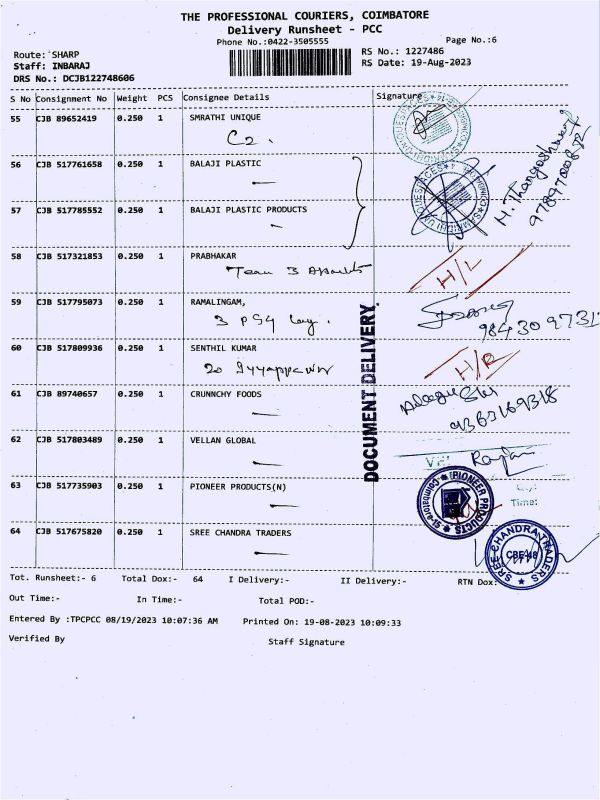 THE PROFESSIONAL COURIERS, COIMBATORE
Delivery Runsheet - PCC
Phone No.:0422-3505555
Page No.:6
Route: SHARP
RS No.: 1227486
Staff: INBARAJ
RS Date: 19-Aug-2023
DRS No.: DCJB122748606
S No Consignment No Weight PCS Consignee Details Signature
55 CJB 89652419 0.250 1 SMRATHI UNIQUE
C2.
56 CJB 517761658 0.250 1 BALAJI PLASTIC
57 CJB 517785552 0.250 1 BALAJI PLASTIC PRODUCTS
58 CJB 517321853 0.250 1 PRABHAKAR
H/L
59 CJB 517795073 0.250 1 RAMALINGAM,
3 PSG Lay.
60 CJB 517809936 0.250 1 SENTHIL KUMAR
H/R
61 CJB 89740657 0.250 1 CRUNNCHY FOODS
62 CJB 517803489 0.250 1 VELLAN GLOBAL
63 CJB 517735903 0.250 1 PIONEER PRODUCTS(N)
PIONEER PRODUCTS
Coimbatore-15
Time:
64 CJB 517675820 0.250 1 SREE CHANDRA TRADERS
SREE CHANDRA TRADERS
CBE-48
DOCUMENT DELIVERY.
Tot. Runsheet:- 6 Total Dox:- 64 I Delivery:- II Delivery:- RTN Dox:
Out Time:- In Time:- Total POD:-
Entered By :TPCPCC 08/19/2023 10:07:36 AM Printed On: 19-08-2023 10:09:33
Verified By Staff Signature